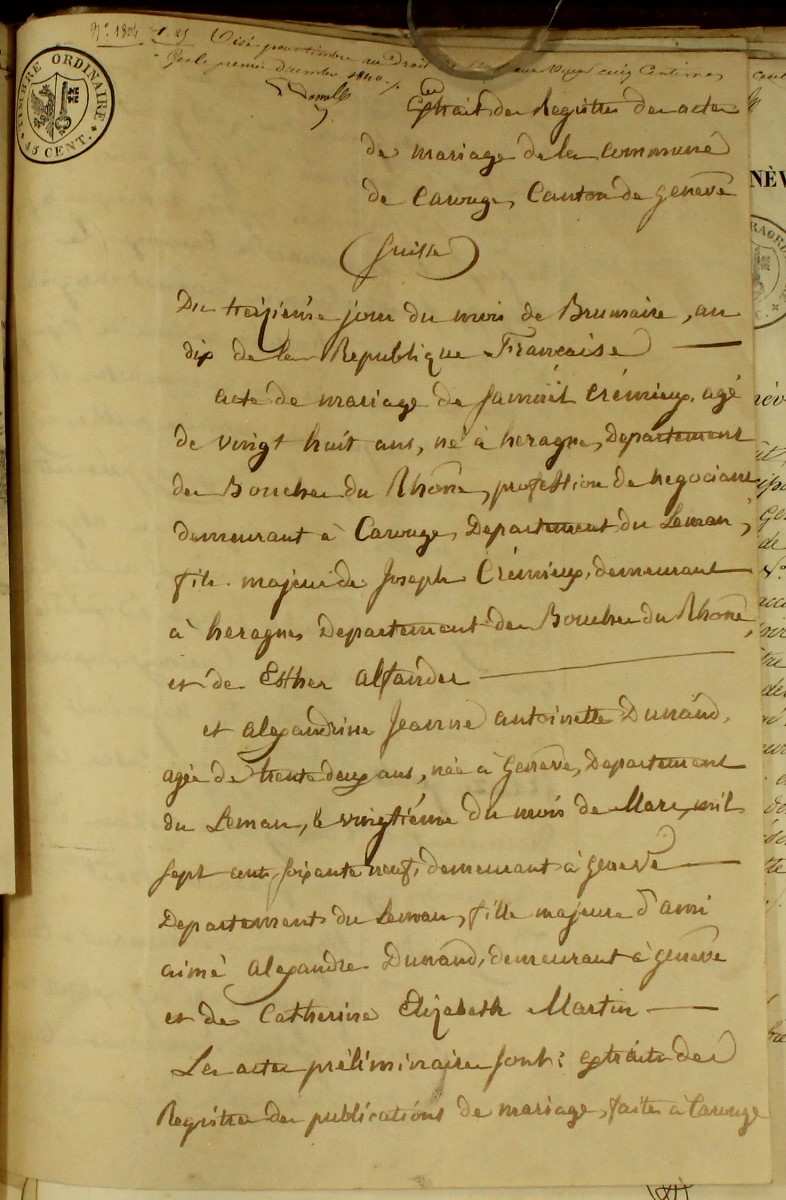 N.° 1804
Visé pour timbre au Droit de
le premier Decembre 1840.
TIMBRE ORDINAIRE
15 CENT.
Extrait des Registres des actes
de mariage de la commune
de Carouge, Canton de Genève
(Suisse)
Du treizieme jour du mois de Brumaire, an
dix de la Republique Francaise
acte de mariage de Samuël Crémieux, agé
de vingt huit ans, né à heragne, Departement
des Bouches du Rhône, profession de negociant
demeurant à Carouge, Departement du Leman,
fils majeur de Joseph Crémieux, demeurant
à heragne, Departement des Bouches du Rhône,
et de Esther
et alexandrine Jeanne antoinette Dunand,
agée de trente deux ans, née à Genève, Departement
du Leman, le vingtiéme du mois de Mars, mil
sept cent soixante neuf, demeurant à Genève
Departement du Leman, fille majeure d'ami
aimé alexandre Dunand, demeurant à Genève
et de Catherine Elizabeth Martin
Les actes préliminaires sont: extraits des
Registres des publications de mariage, faites à Carouge